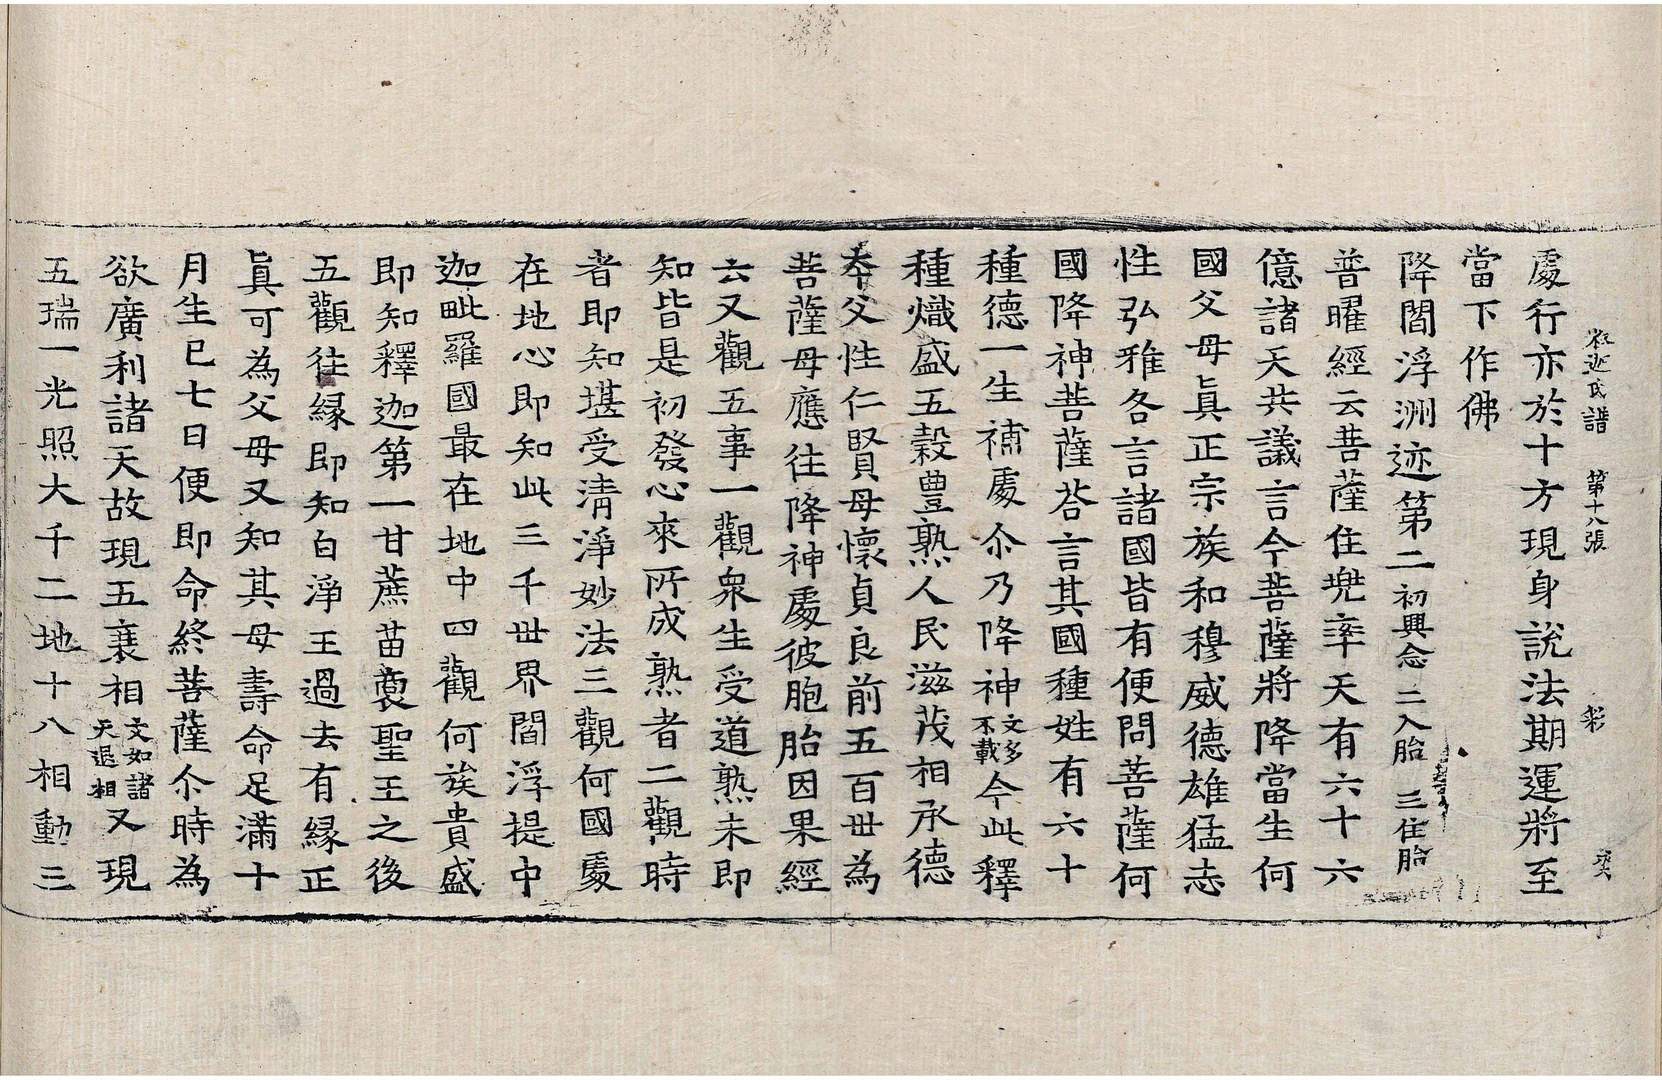 釋迦氏譜 第十八張 彩
處行亦於十方現身說法期運將至
當下作佛
降閻浮洲迹第二 初興念 二入胎 三住胎
普曜經云菩薩住兜率天有六十六
億諸天共議言今菩薩將降當生何
國父母真正宗族和穆威德雄猛志
性弘雅各言諸國皆有便問菩薩何
國降神菩薩荅言其國種姓有六十
種德一生補處尒乃降神文多不載今此釋
種熾盛五穀豊熟人民滋茂相承德
奉父性仁賢母懷貞良前五百世為
菩薩母應往降神處彼胞胎因果經
云又觀五事一觀衆生受道熟未即
知皆是初發心來所成熟者二觀時
者即知堪受清淨妙法三觀何國處
在地心即知此三千世界閻浮提中
迦毗羅國最在地中四觀何族貴盛
即知釋迦第一甘蔗苗裔聖王之後
五觀往縁即知白淨王過去有縁正
真可為父母又知其母壽命足滿十
月生已七日便即命終菩薩尒時為
欲廣利諸天故現五衰相文如諸天退相又現
五瑞一光照大千二地十八相動三